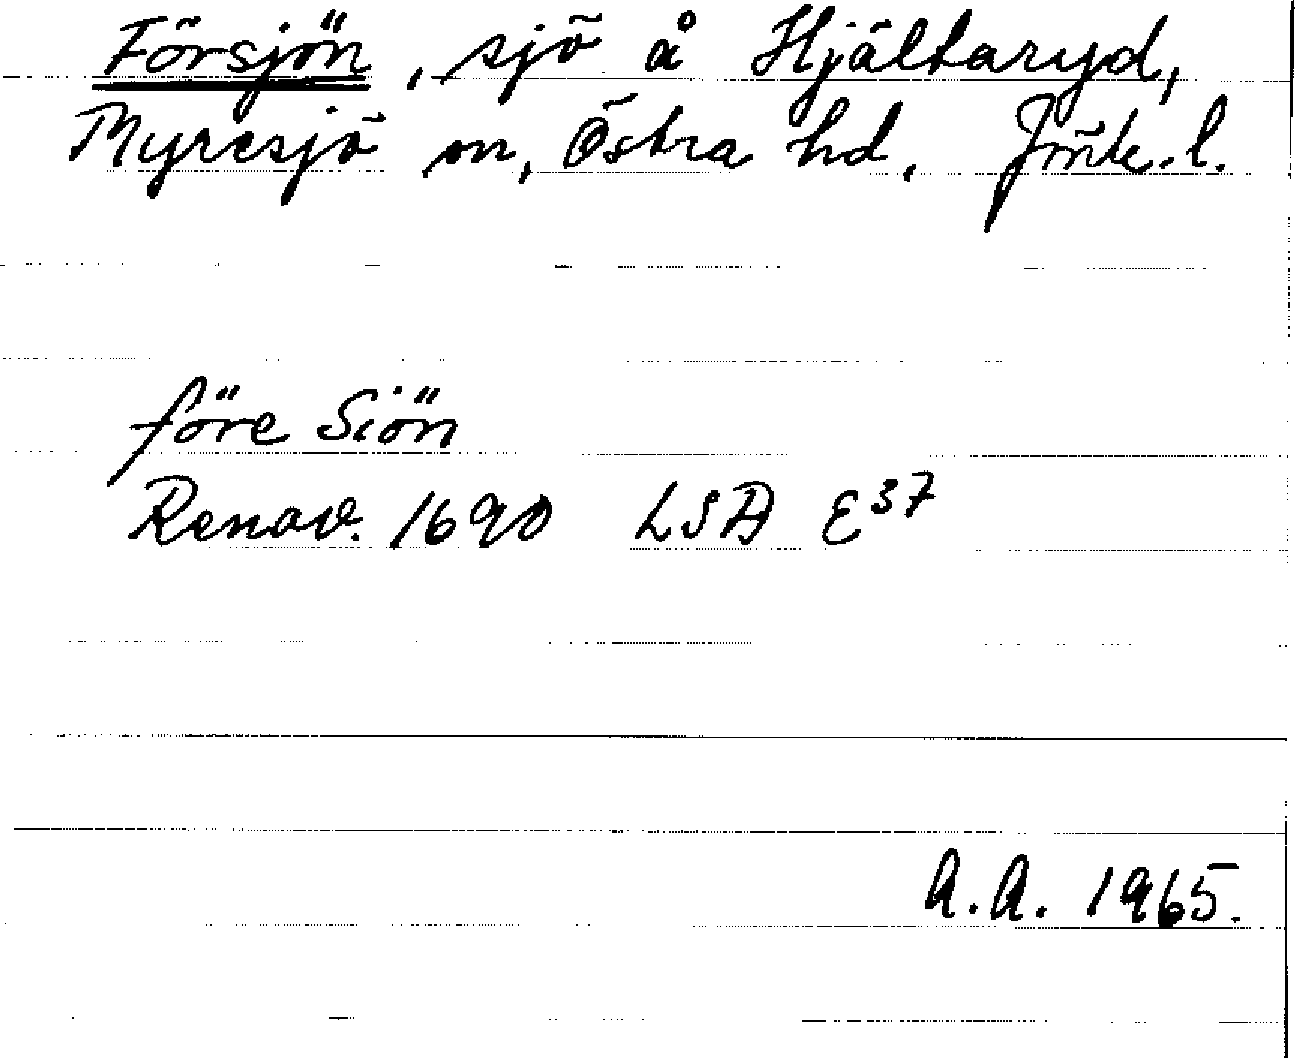 Försjön, sjö å Hjältaryd,
Myresjö sn, Östra hd. Jönk. l.
före Siön
Renov. 1690 LSA E³⁷
A.A. 1965.